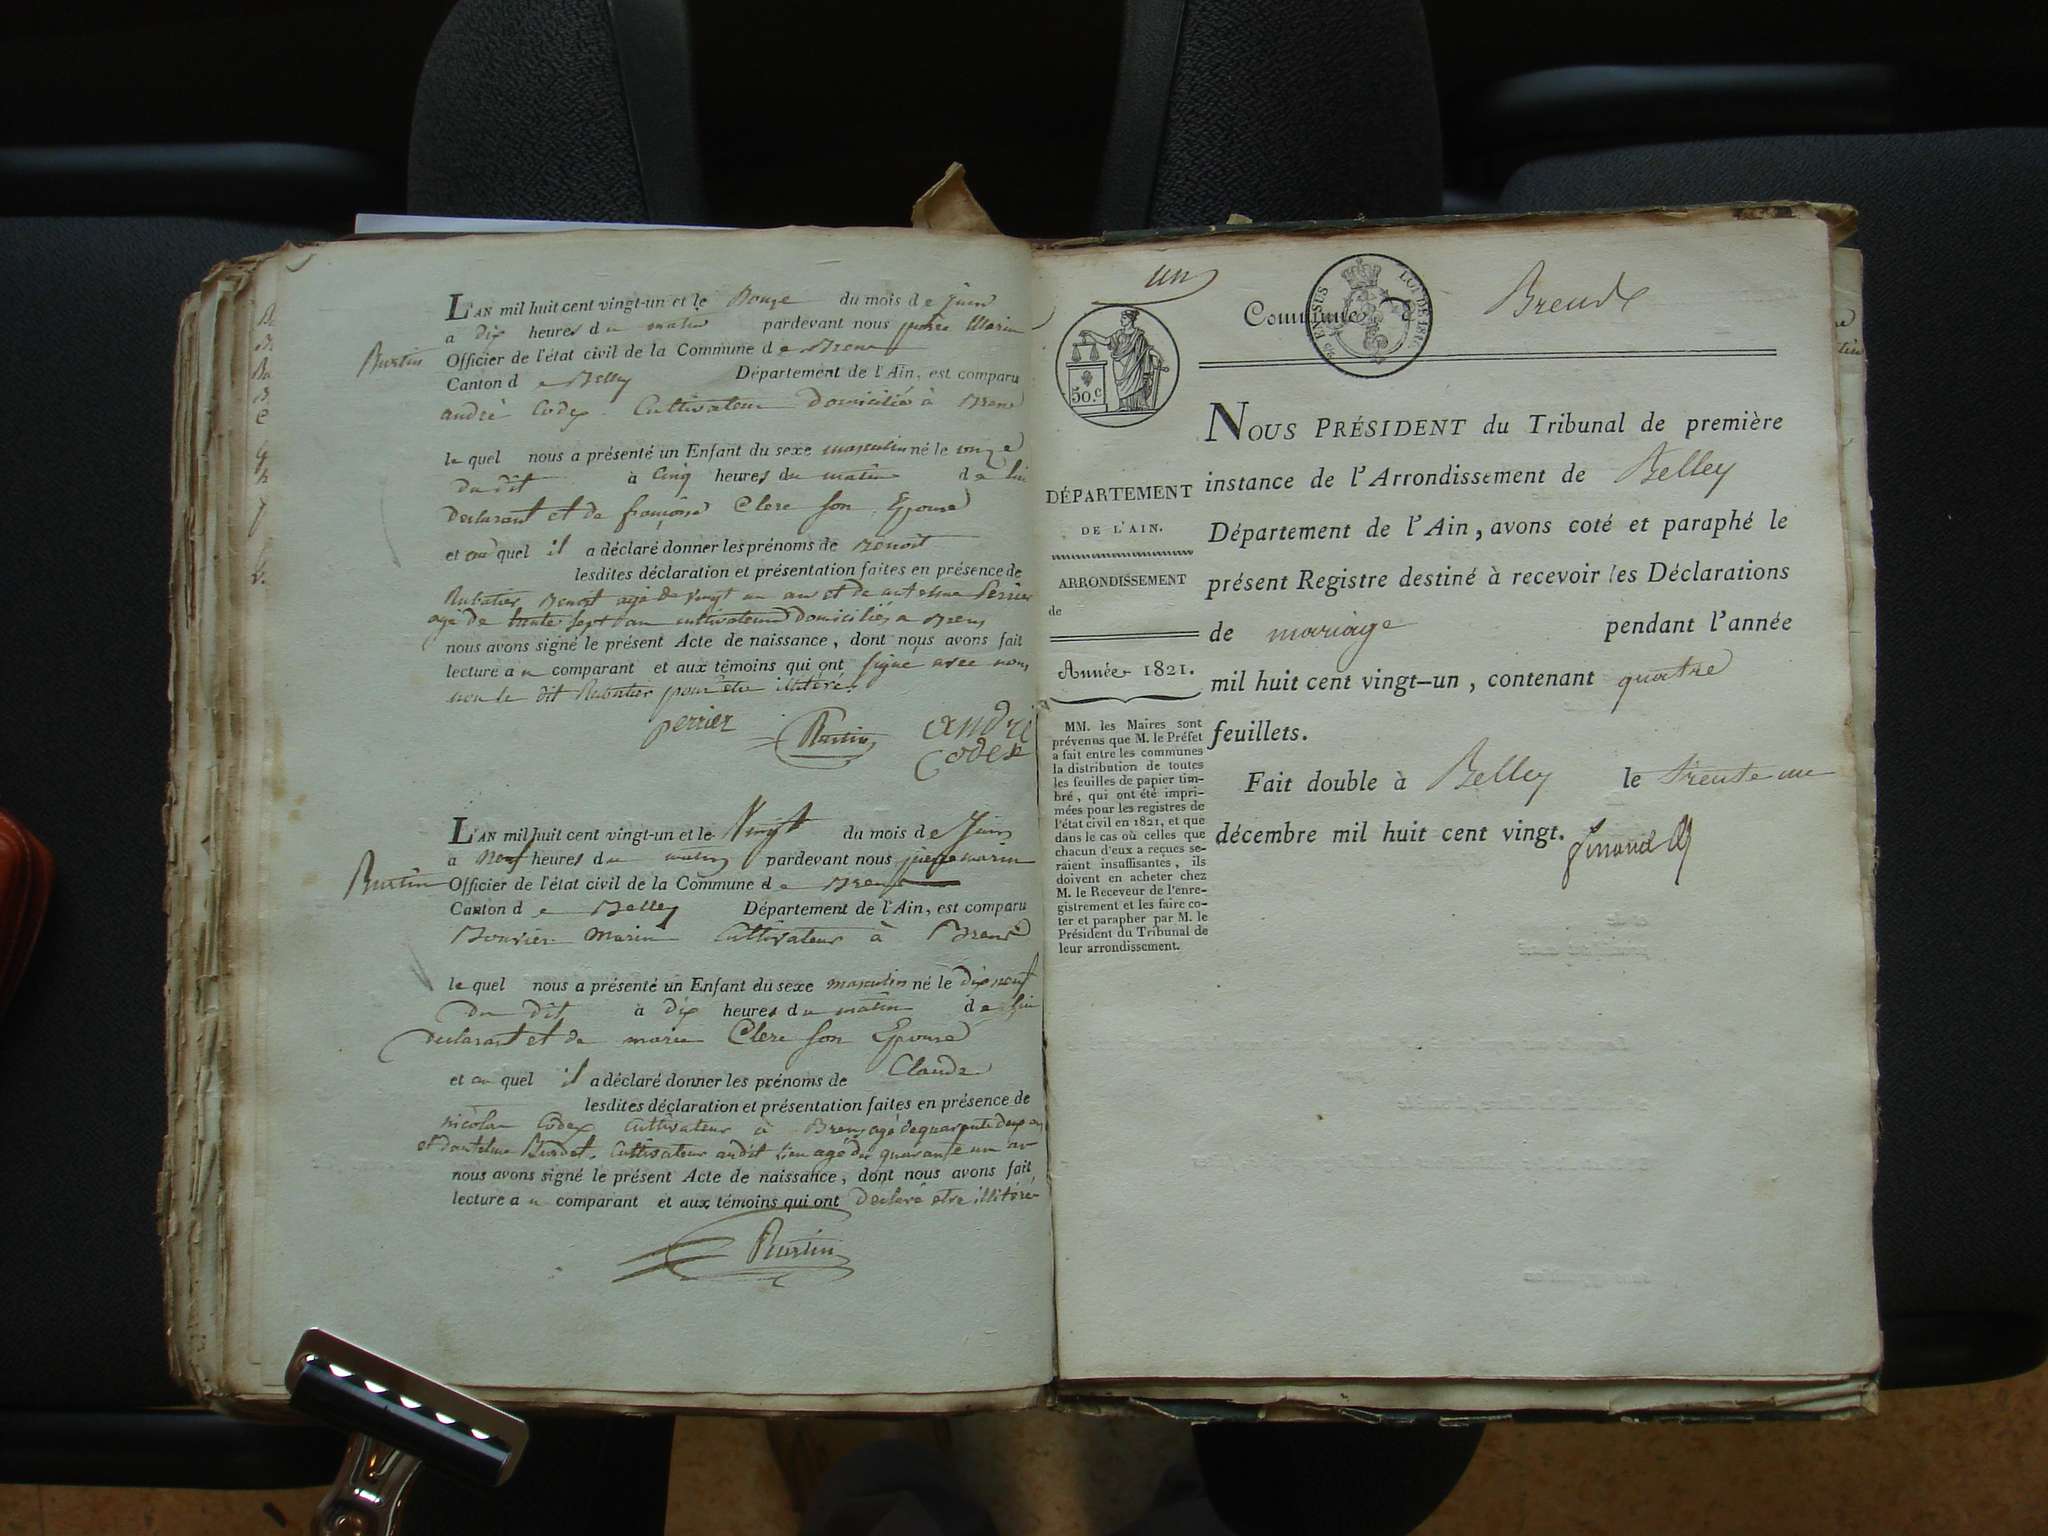 L'AN mil huit cent vingt-un et le Douze du mois de juin
a dix heures du matin pardevant nous pierre Marin
Burtin Officier de l'état civil de la Commune de Brens
Canton de Belley Département de l'Ain, est comparu
andré Codex Cultivateur Domicilié à Brens
le quel nous a présenté un Enfant du sexe masculin né le onze
du dit à Cinq heures du matin de lui
declarant et de françoise Clerc son Epouse
et au quel il a déclaré donner les prénoms de Benoit
lesdites déclaration et présentation faites en présence de
Rubatier Benoit agé de vingt un ans et de antelme Perrier
agé de trente sept ans cultivateurs Domiciliés a Brens
nous avons signé le présent Acte de naissance, dont nous avons fait
lecture au comparant et aux témoins qui ont signé avec nous
non le dit Rubatier pour être illitéré.
perrier Burtin andré
Codex
L'AN mil huit cent vingt-un et le Vingt du mois de Juin
a Neuf heures du matin pardevant nous pierre marin
Burtin Officier de l'état civil de la Commune de Brens
Canton de Belley Département de l'Ain, est comparu
Bouvier Marin Cultivateur à Brens
le quel nous a présenté un Enfant du sexe masculin né le dix neuf
du dit à dix heures du matin de lui
declarant et de marie Clerc son Epouse
et au quel il a déclaré donner les prénoms de Claude
lesdites déclaration et présentation faites en présence de
nicolas Codex Cultivateur à Brens agé de quarante deux ans
et d'antelme Burdet Cultivateur au dit lieu agé de quarante un an
nous avons signé le présent Acte de naissance, dont nous avons fait
lecture au comparant et aux témoins qui ont declaré etre illitéré
Burtin
un
Commune de Brens
LOI DE 1816
50.c
DÉPARTEMENT
DE L'AIN.
ARRONDISSEMENT
de
Année 1821.
MM. les Maires sont
prévenus que M. le Préfet
a fait entre les communes
la distribution de toutes
les feuilles de papier tim-
bré, qui ont été impri-
mées pour les registres de
l'état civil en 1821, et que
dans le cas où celles que
chacun d'eux a reçues se-
raient insuffisantes, ils
doivent en acheter chez
M. le Receveur de l'enre-
gistrement et les faire co-
ter et parapher par M. le
Président du Tribunal de
leur arrondissement.
NOUS PRÉSIDENT du Tribunal de première
instance de l'Arrondissement de Belley
Département de l'Ain, avons coté et paraphé le
présent Registre destiné à recevoir les Déclarations
de mariage pendant l'année
mil huit cent vingt-un, contenant quatre
feuillets.
Fait double à Belley le trente un
décembre mil huit cent vingt.